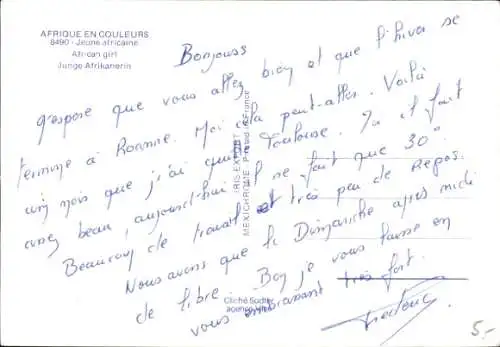 AFRIQUE EN COULEURS
8490 - Jeune africaine
African girl
Junge Afrikanerin
Bonjours
J'espore que vous allez bien et que l'hiver se
termine à Roanne. Moi cela peut-aller. Voilà
cinq mois que j'ai quitté Toulouse. Ici il fait
assez beau, aujourd'hui il ne fait que 30°.
Beaucoup de travail et très peu de Repos.
Nous avons que le Dimanche après midi
de libre. Bon je vous laisse en
vous embrassant très fort.
IRIS-EXPORT
MEXICHROME - Printed in France
Cliché Sudre
5,-